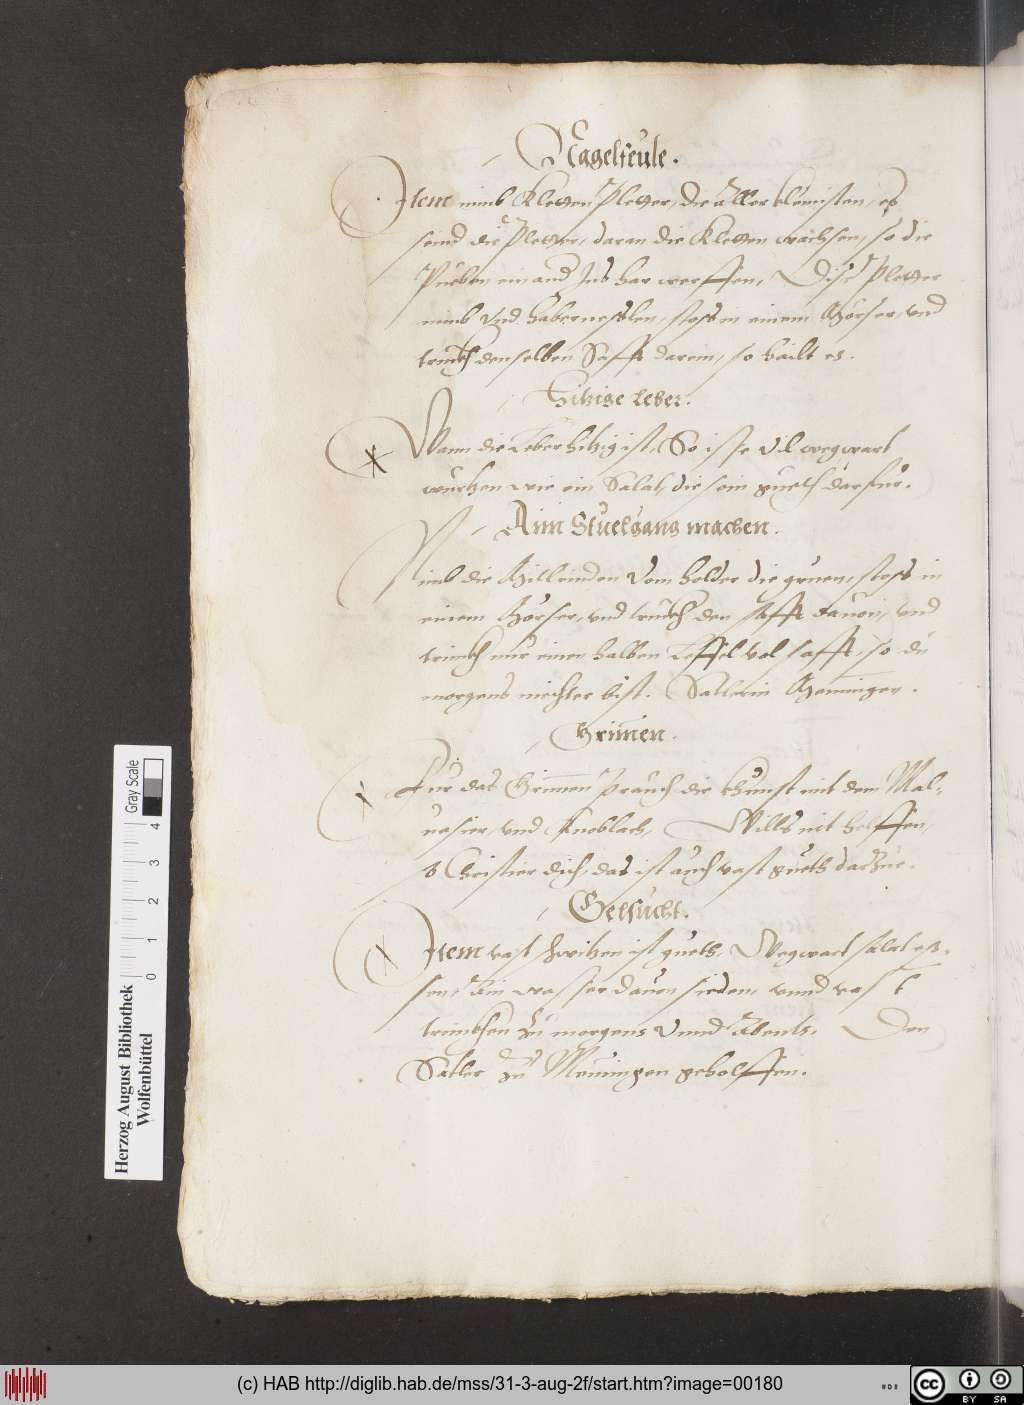 Nagelfeüle.
Item nimb Kletten Pletter, die aller klainisten, es
seind die Pletter, daran die Kletten wachsen, so die
Pueben ein and Ins har werffen, Dise Pletter
nimb vnd habernesslen, stoss in einem Mörser, vnd
truckh denselben Safft darein, so hailt es.
Hitzige leber.
Wann die Leber hitzig ist, So isse vil wegwart
wurtzen wie ein Salat, die sein gueth darfür.
Aim Stuelgang machen.
Nimb die Mitl rinden vom holder die gruen, stoss in
einem Mörser, vnd truckh den safft dauon, vnd
trinckh nur einen halben Leffel vol safft, so du
morgens niechter bist. Satlerin Menningen.
Grimen.
Für das Grimmen prauch die Khunst mit dem Mal-
uasier, vnd Knoblach, Wills nit helffen,
so Christier dich, das ist auch vast gueth darzue.
Gelsucht.
Item vast schwitzen ist gueth, Wegwart salat es-
sen, Ain wasser dauon sieden, vnnd vast
trinckhen zu morgens vnnd Abents. Den
Satler zu Menningen geholffen.
Herzog August Bibliothek
Wolfenbüttel
0 1 2 3 4
Gray Scale
(c) HAB http://diglib.hab.de/mss/31-3-aug-2f/start.htm?image=00180
cc BY SA